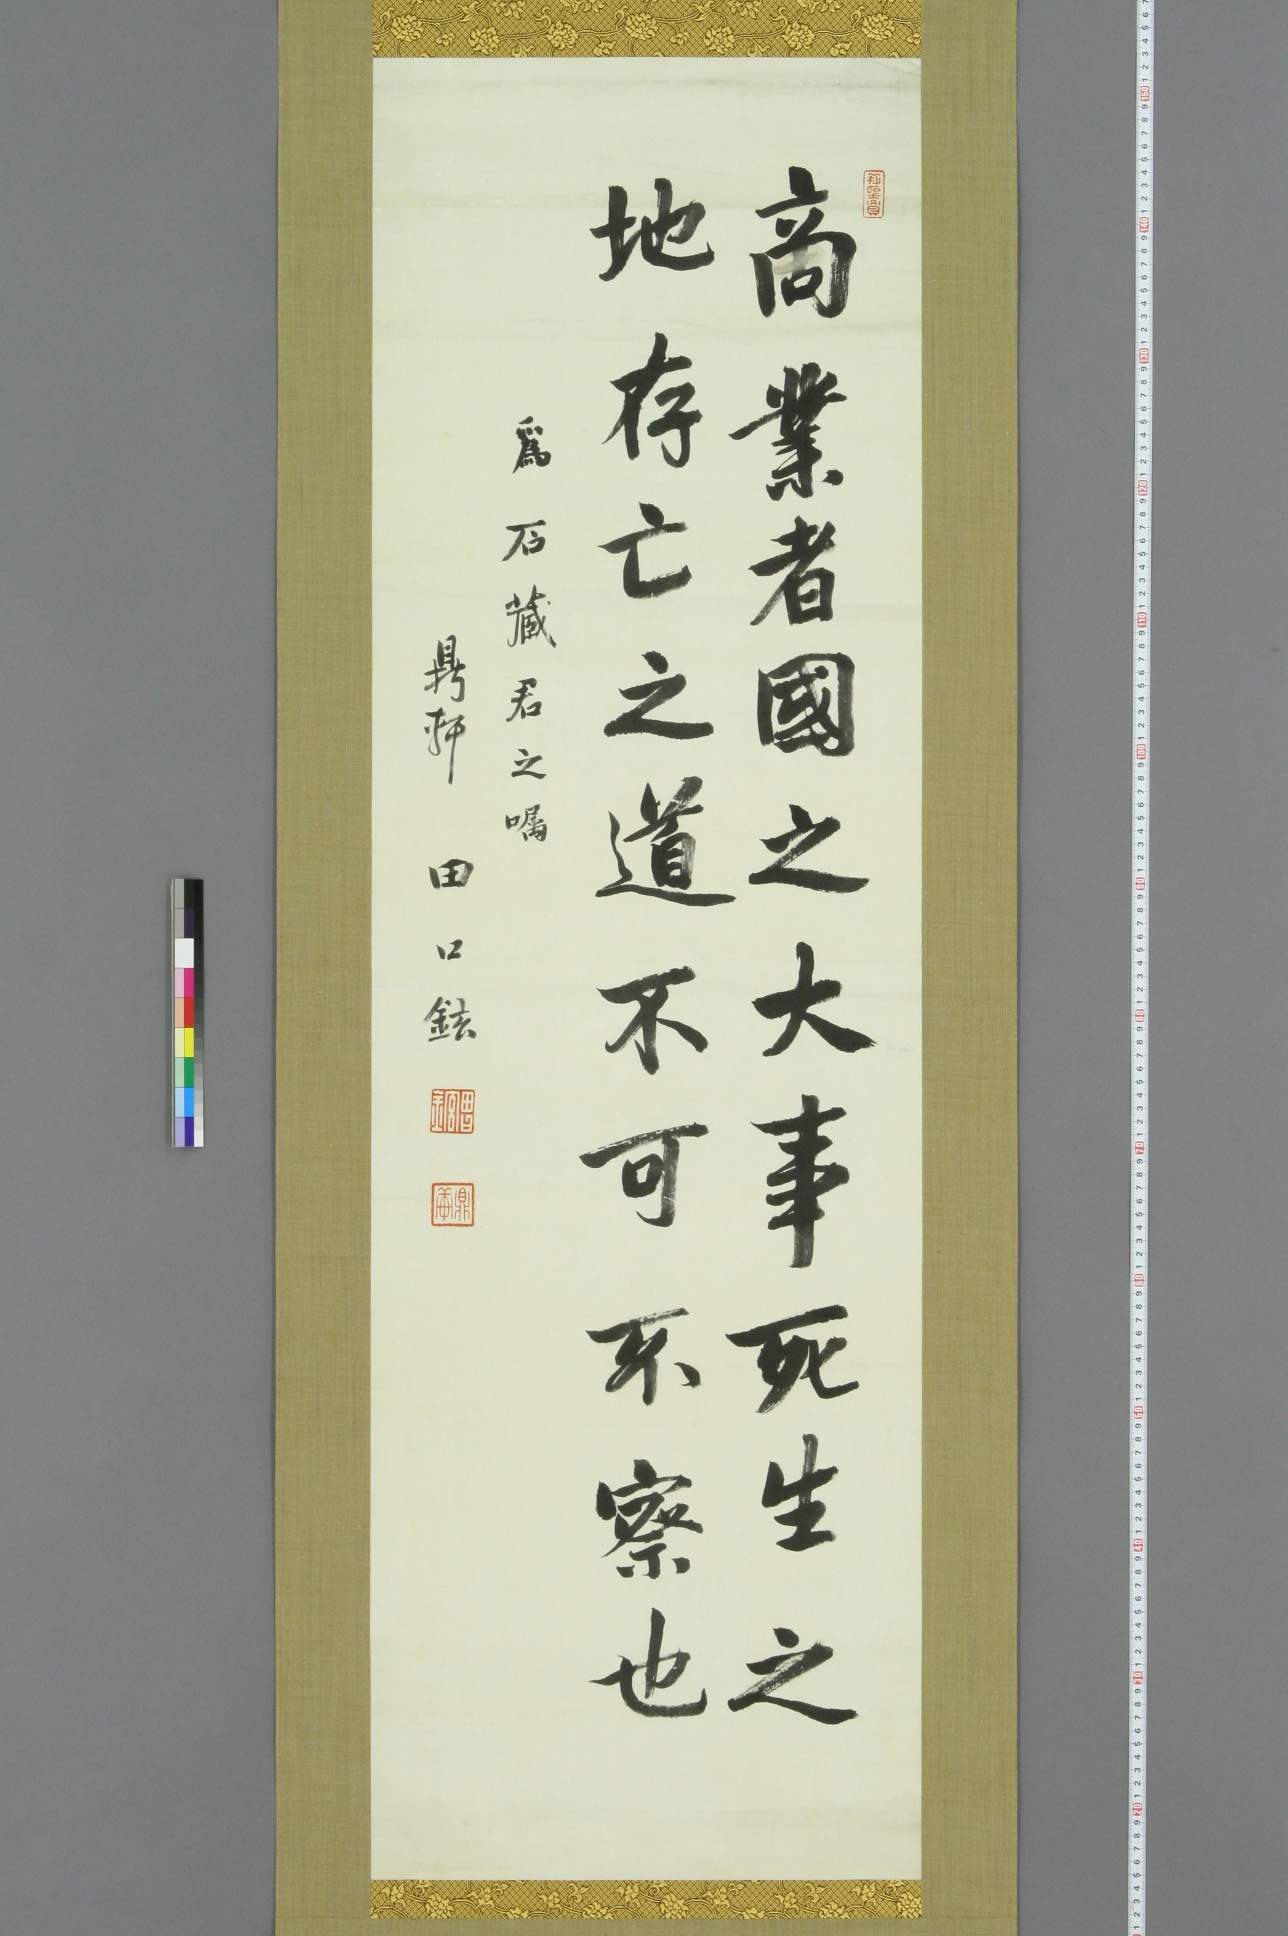 商業者國之大事死生之
地存亡之道不可不察也
爲石藏君之嘱
鼎軒田口鉉